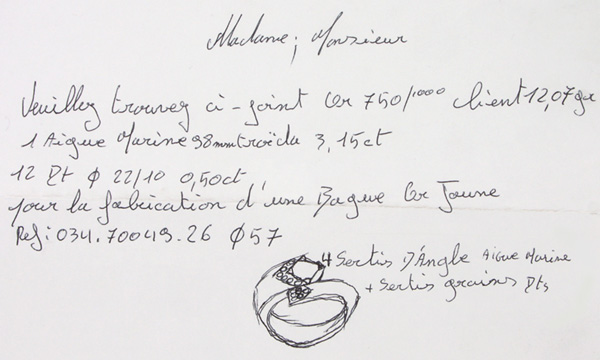 Madame ; Monsieur
Veuillez trouvez ci-joint Or 750/1000 client 12,07gr
1 Aigue Marine 98mm troïda 3,15ct
12 Dt Ø 22/10 0,50ct
pour la fabrication d'une Bague Or Jaune
Ref: 034.70049.26 Ø57
4 Sertis D'Angle Aigue Marine
+ Sertis grains Dts